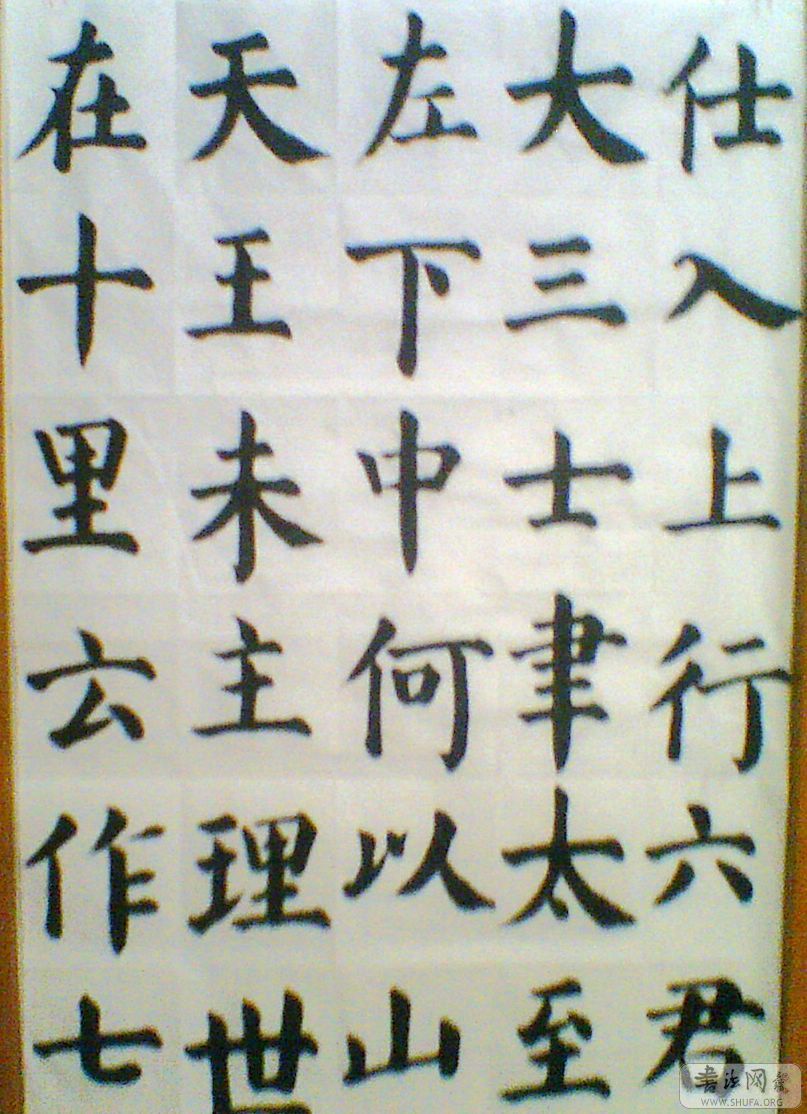 仕入上行六君
大三士聿太至
左下中何以山
天王未主理世
在十里作七
书法网
WWW.SHUFA.ORG